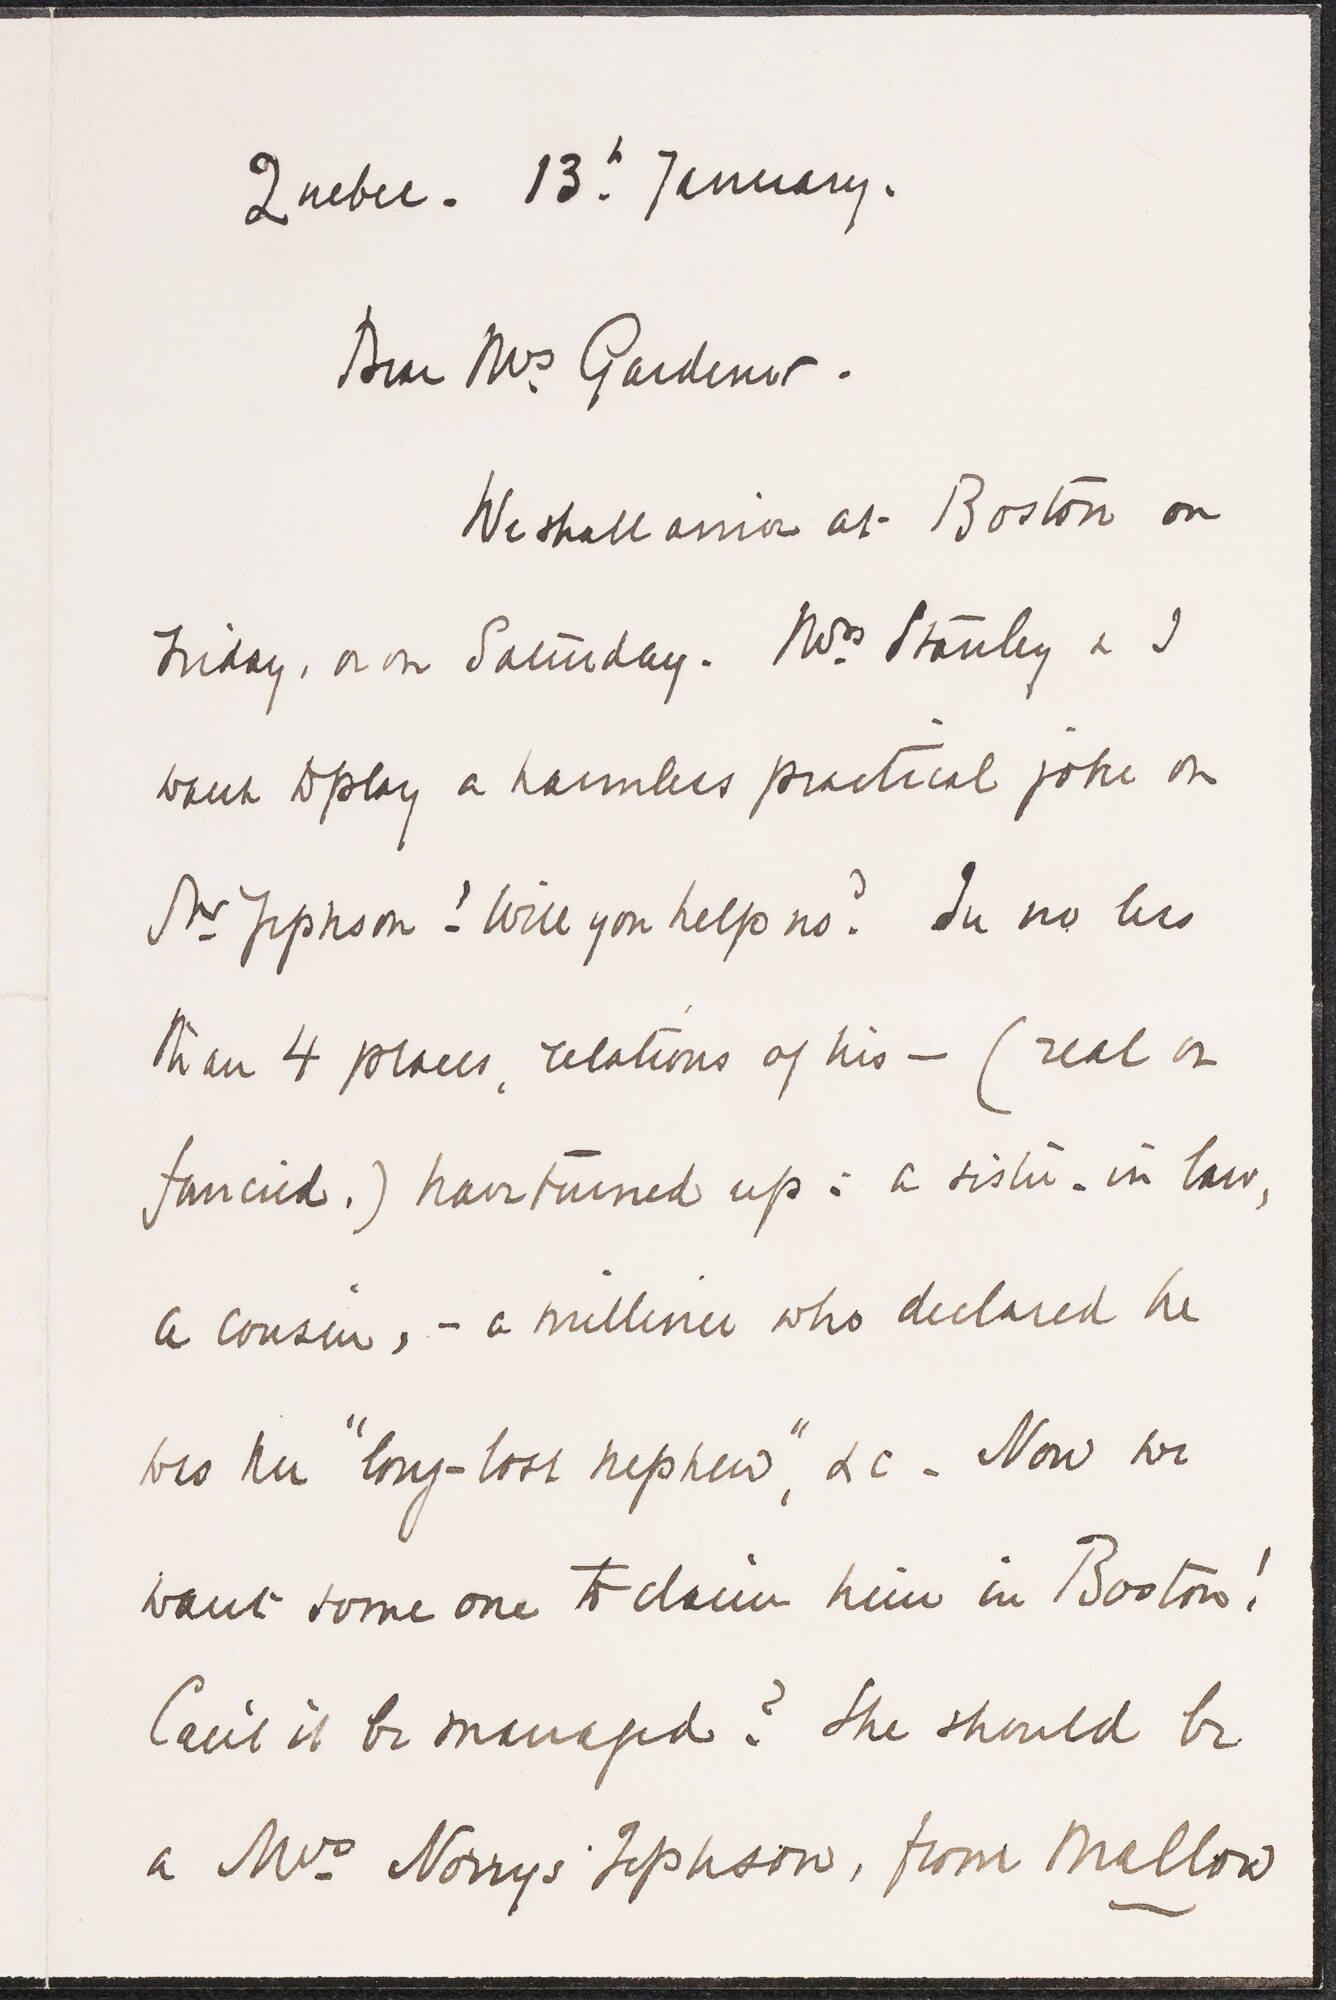 Quebec. 13th January.
Dear Mrs Gardener.
We shall arrive at Boston on
Friday, or on Saturday. Mrs Stanley & I
want to play a harmless practical joke on
Mr Jephson! Will you help us? In no less
than 4 places, relations of his — (real or
fancied.) have turned up: a sister-in law,
a cousin, - a milliner who declared he
was her "long-lost nephew", &c - Now we
want some one to claim him in Boston!
Can't it be managed? She should be
a Mrs Norrys Jephson, from Mallow